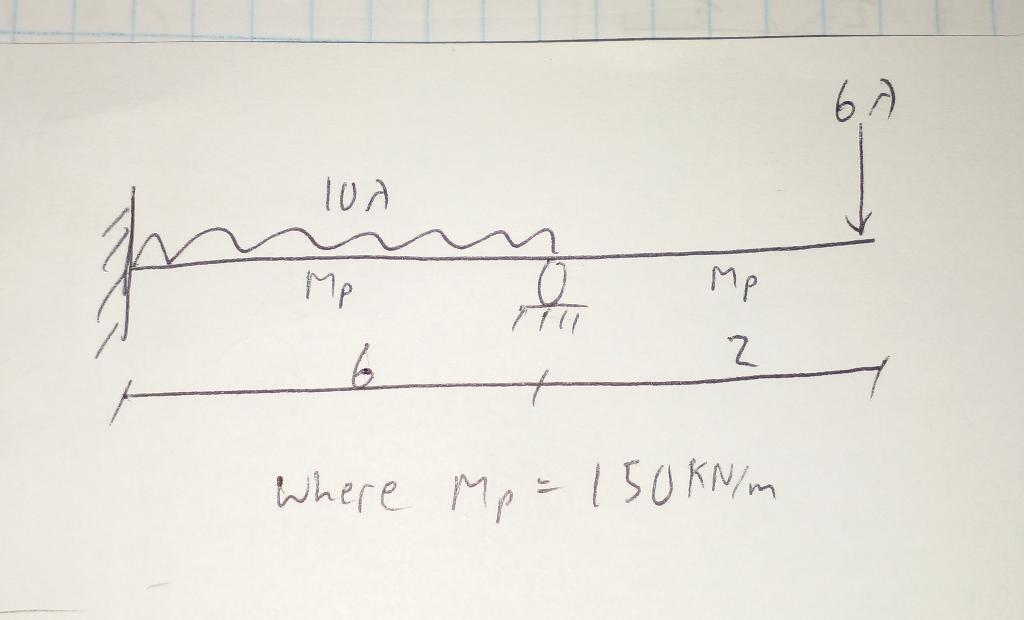 6 λ
10 λ
Mp Mp
6 2
where Mp = 150KN/m